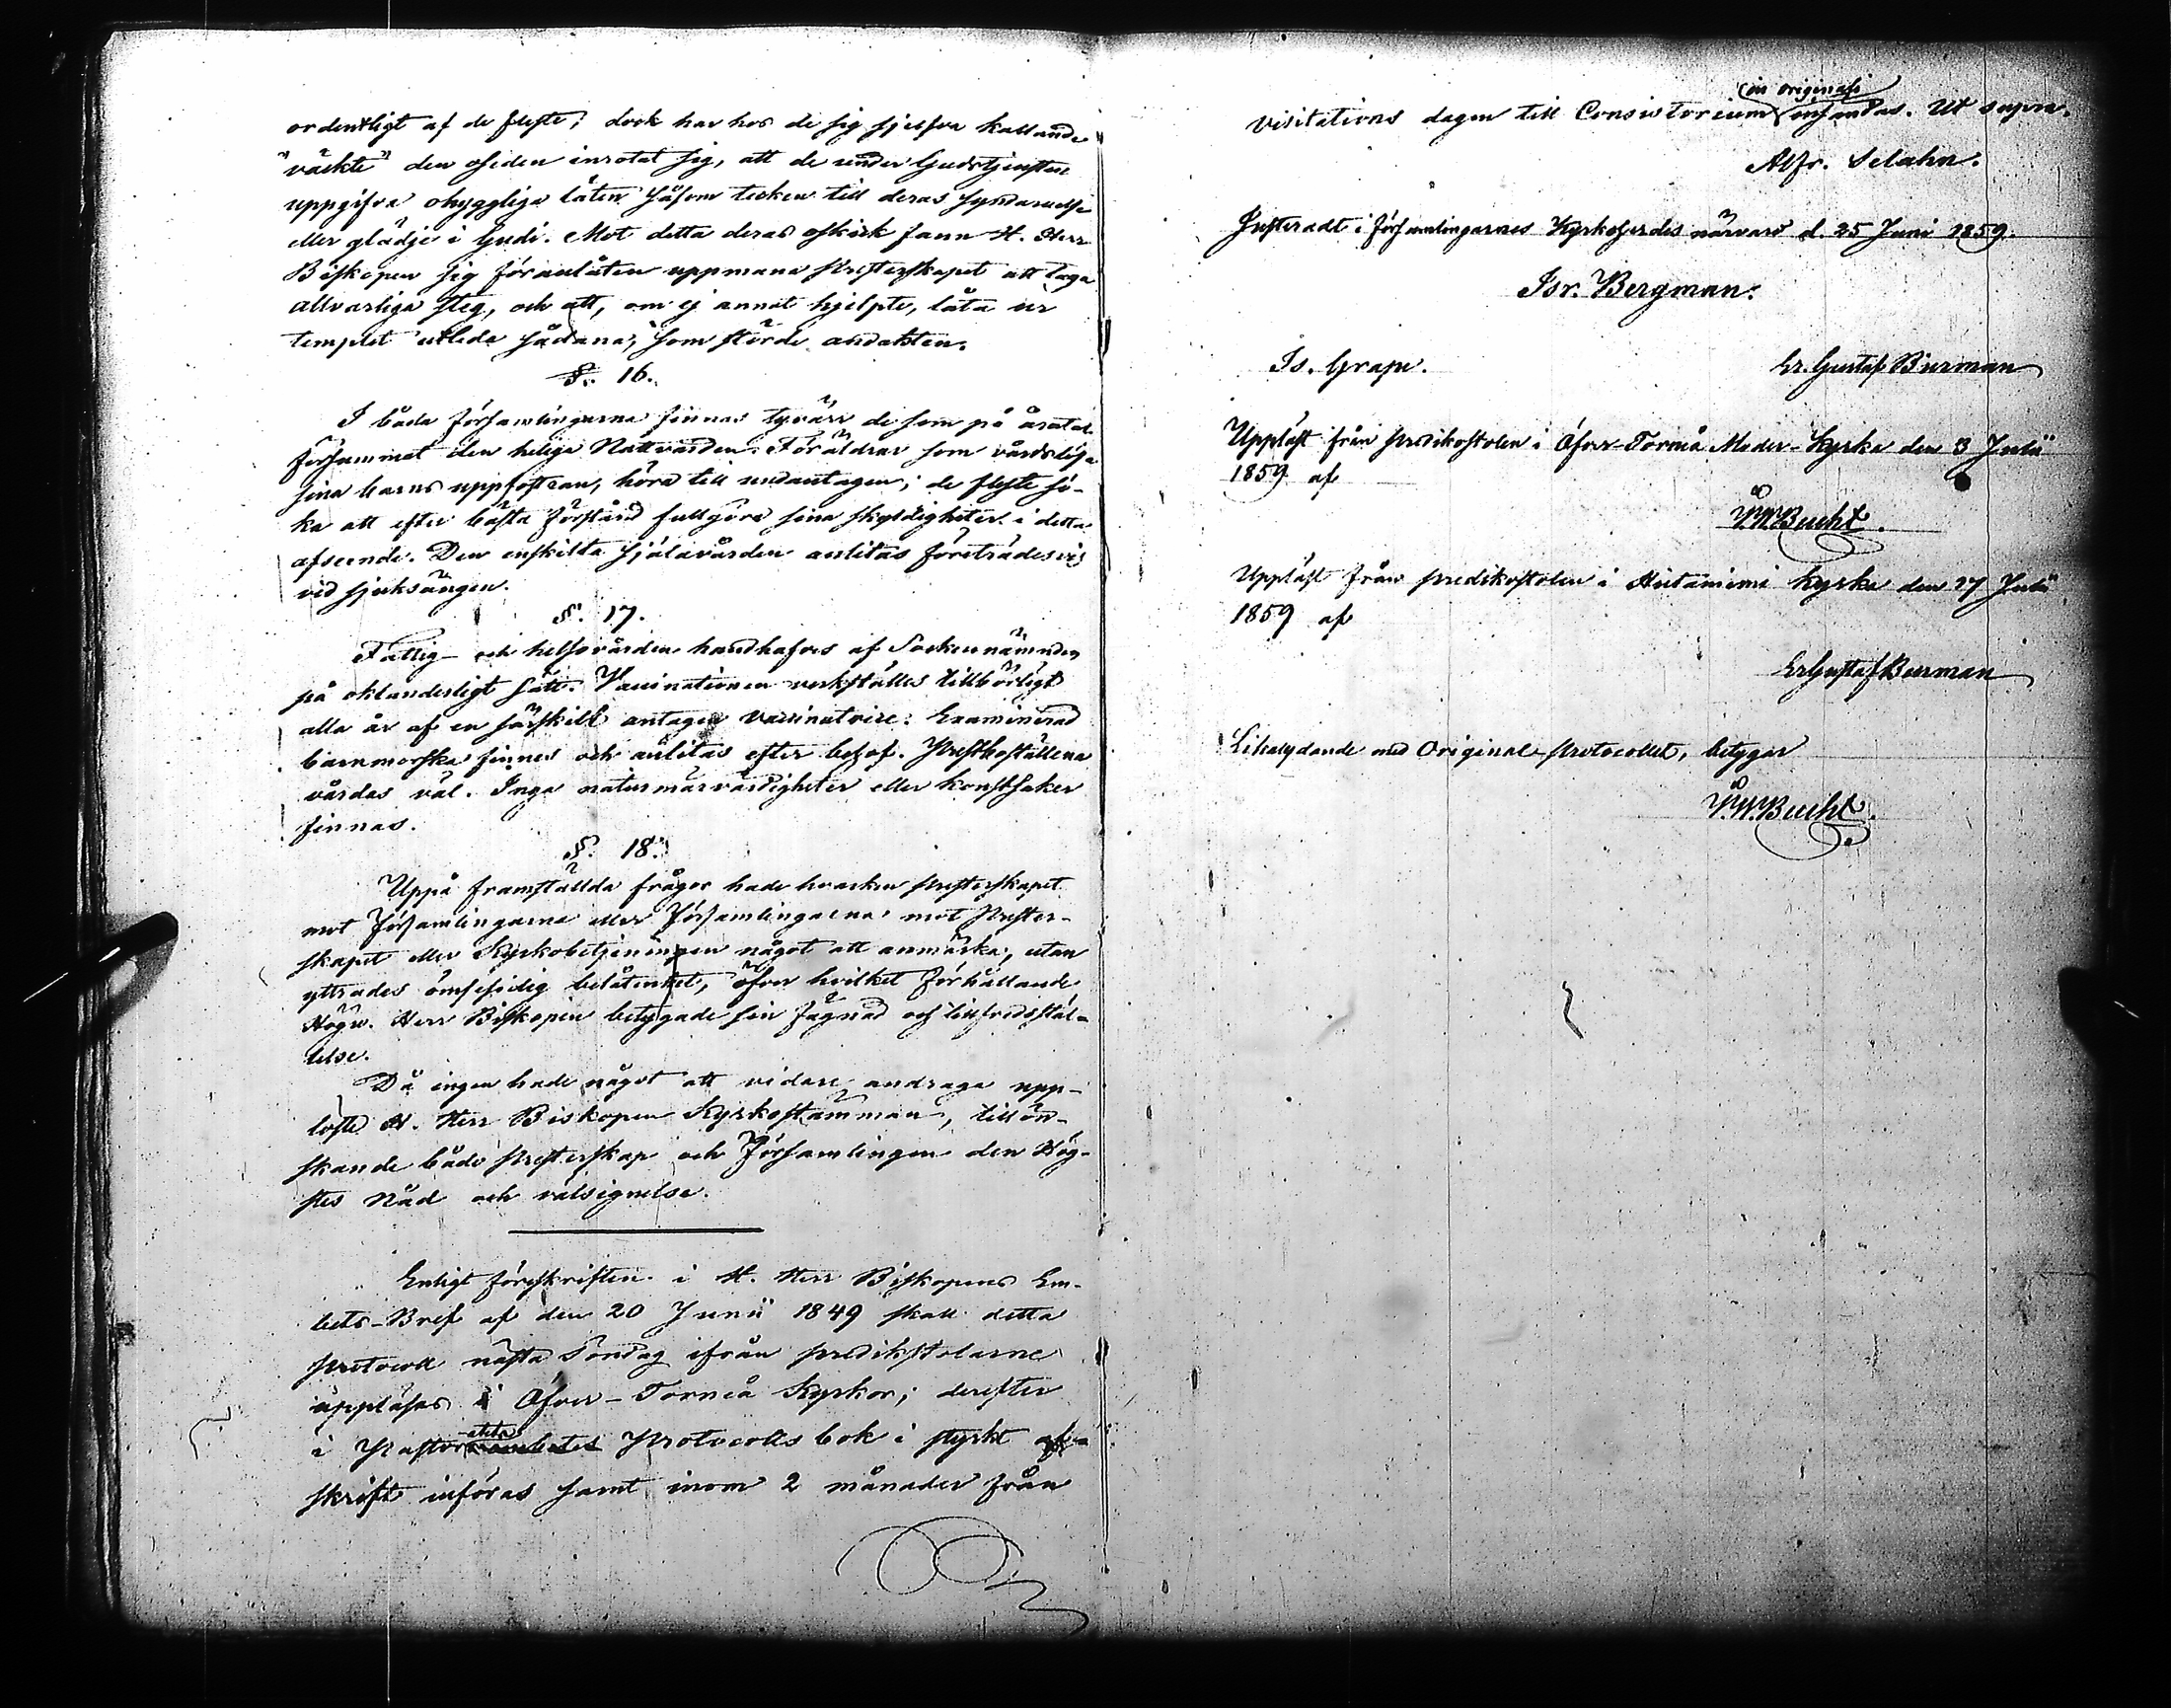 ordentligt af de fleste; dock har hos de sig sjelfva kallande
"väckte" den oseden inrotat sig, att de under Gudstjensten
uppgifva ohyggliga läten såsom tecken till deras syndaruelse
eller glädje i Gudi. Mot detta deras oskick fann H. Herr
Biskopen sig föranlåten uppmana Presterskapet att taga
allvarliga steg, och att, om ej annat hjelpte, låta ur
templet utleda sådana, som störde andakten.
§. 16.
I båda Församlingarna finnas tyvärr de som på åratal
försummat den heliga Nattvarden. Föräldrar som vårdslösa
sina barns uppfostran, höra till undantagen; de fleste sö-
ka att efter bästa förstånd fullgöra sina skyldigheter i detta
afseende. Den enskilta själavården anlitas företrädesvis
vid sjuksängen.
§. 17.
Fattig- och helsovården handhafves af Sockennämnden
på oklanderligt sätt. Vaccinationen verkställes tillbörligt
alla år af en särskilt antagen vaccinatrice. Examinerad
barnmorska finnes och anlitas efter behof. Prestboställena
vårdas väl. Inga naturmärvärdigheter eller konstsaker
finnas.
§. 18.
Uppå framställda frågor hade hvarken Presterskapet
mot Församlingarna eller Församlingarna mot Prester-
skapet eller Kyrkobetjeningen något att anmärka, utan
yttrades ömsesidig belåtenhet, öfver hvilket förhållande
Högv. Herr Biskopen betygade sin fägnad och tillfredsstäl-
lelse.
Då ingen hade något att vidare andraga upp-
löste H. Herr Biskopen Kyrkostämman, tillön-
skande både Presterskap och Församlingen den Hög-
stes Nåd och välsignelse.
Enligt föreskriften i H. Herr Biskopens Em-
bets-Bref af den 20 Junii 1849 skall detta
Protocoll nästa Söndag ifrån predikstolarne
uppläsas i Öfver-Torneå Kyrkor; derefter
i Pastors Protocolls bok i styrkt af-
skrift införas samt inom 2 månader från
visitations dagen till Consistorium (in originali) insändas. Ut supra.
Alfr. Selahn.
Justeradt i Församlingarnes Kyrkoherdes närvaro d. 25 Juni 1859.
Isr. Bergman.
Is. Grape. Er. Gustaf Burman
Uppläst från Predikostolen i Öfver-Torneå Moder-Kyrka den 3 Julii
1859 af
P.W. Bucht.
Uppläst från predikostolen i Hietaniemi Kyrka den 27 Julii
1859 af
Er Gustaf Burman
Likalydande med Original-Protocollet, betygar
P.W. Bucht.